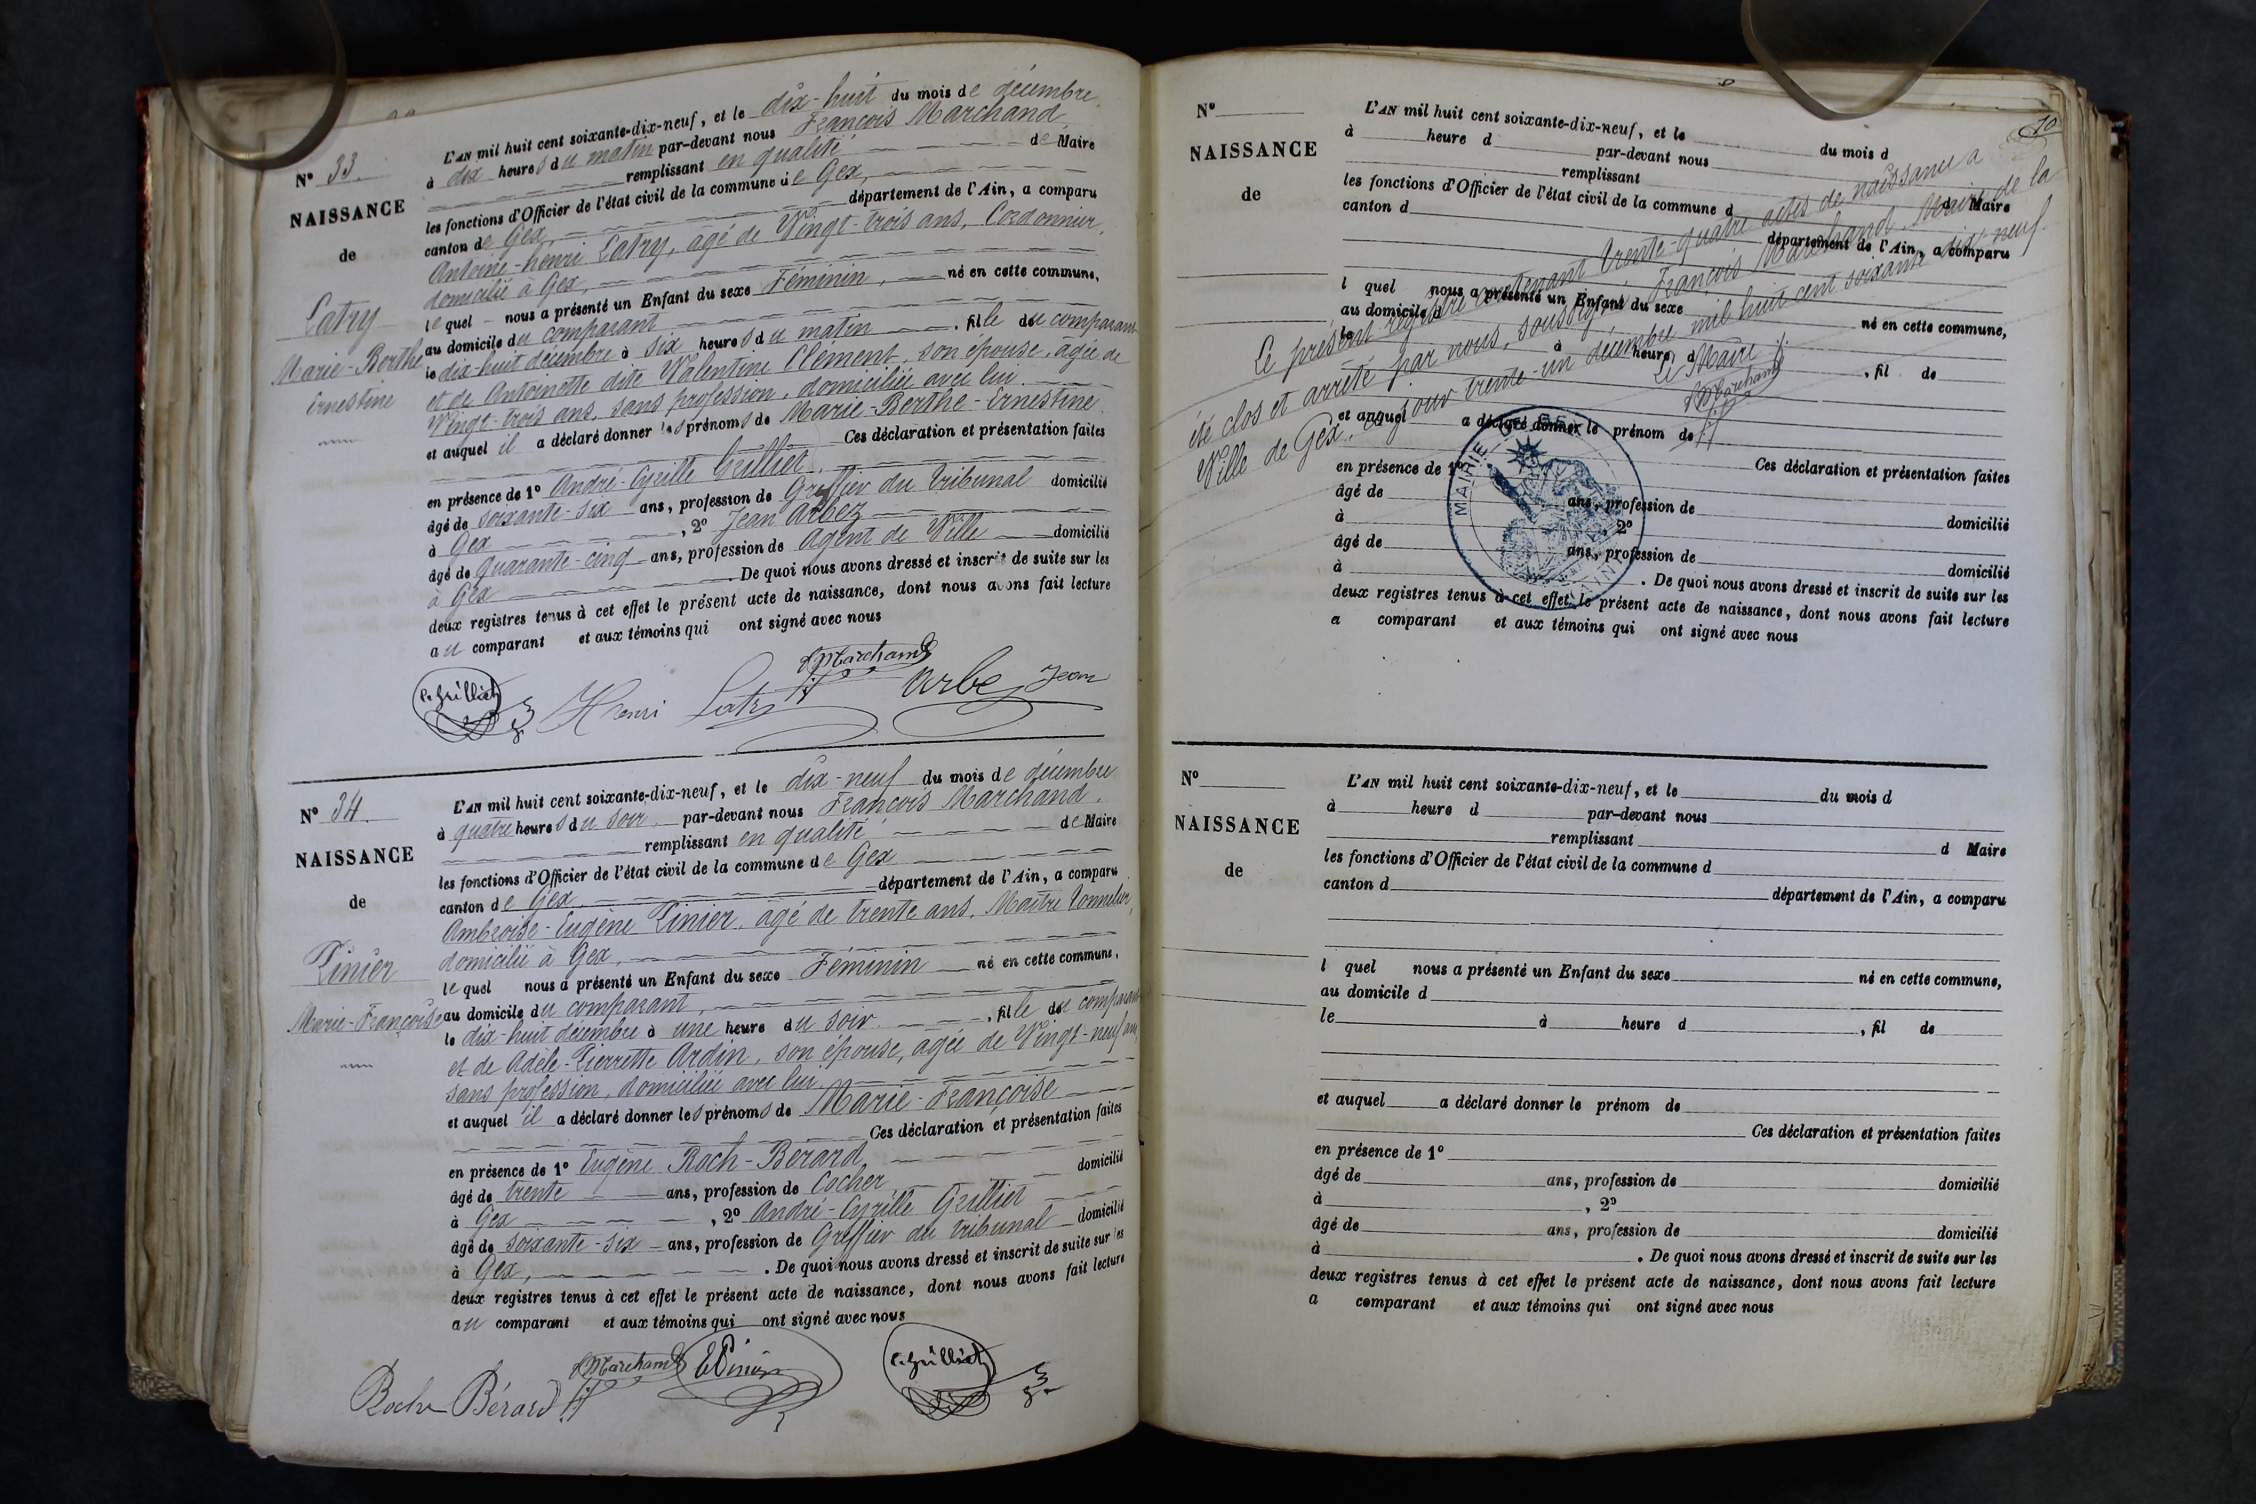 N° 33.
NAISSANCE
de
Latry
Marie-Berthe
Ernestine
L'AN mil huit cent soixante-dix-neuf, et le dix-huit du mois de décembre,
à dix heures du matin par-devant nous François Marchand
remplissant en qualité de Maire
les fonctions d'Officier de l'état civil de la commune de Gex,
canton de Gex, département de l'Ain, a comparu
Antoine-henri Latry, âgé de Vingt-trois ans, Cordonnier,
domicilié à Gex,
lequel nous a présenté un Enfant du sexe Féminin, né en cette commune,
au domicile du comparant
le dix-huit décembre à six heures du matin, fille du comparant
et de Antoinette dite Valentine Clément, son épouse, âgée de
Vingt-trois ans, sans profession, domiciliée avec lui.
et auquel il a déclaré donner les prénoms de Marie-Berthe-Ernestine
Ces déclaration et présentation faites
en présence de 1° André-Cyrille Grilliet,
âgé de soixante-six ans, profession de Greffier du tribunal domicilié
à Gex, 2° Jean Arbez
âgé de quarante-cinq ans, profession de Agent de Ville domicilié
à Gex. De quoi nous avons dressé et inscrit de suite sur les
deux registres tenus à cet effet le présent acte de naissance, dont nous avons fait lecture
au comparant et aux témoins qui ont signé avec nous
C. Grilliet Henri Latry F Marchand Arbez Jean
N° 34.
NAISSANCE
de
Pinier
Marie-Françoise
L'AN mil huit cent soixante-dix-neuf, et le dix-neuf du mois de décembre
à quatre heures du soir par-devant nous François Marchand,
remplissant en qualité de Maire
les fonctions d'Officier de l'état civil de la commune de Gex
canton de Gex, département de l'Ain, a comparu
Ambroise-Eugène Pinier, âgé de trente ans, Maître tonnelier,
domicilié à Gex,
lequel nous a présenté un Enfant du sexe Féminin né en cette commune,
au domicile du comparant,
le dix-huit décembre à une heure du soir, fille du comparant
et de Adèle-Pierrette Ardin, son épouse, âgée de Vingt-neuf ans,
sans profession, domiciliée avec lui.
et auquel il a déclaré donner les prénoms de Marie-Françoise
Ces déclaration et présentation faites
en présence de 1° Eugène Roch-Bérard,
âgé de trente ans, profession de Cocher domicilié
à Gex, 2° André-Cyrille Grilliet
âgé de soixante-six ans, profession de Greffier du tribunal domicilié
à Gex, . De quoi nous avons dressé et inscrit de suite sur les
deux registres tenus à cet effet le présent acte de naissance, dont nous avons fait lecture
au comparant et aux témoins qui ont signé avec nous
Roch Bérard F Marchand E Pinier C. Grilliet
70
N°
NAISSANCE
de
L'AN mil huit cent soixante-dix-neuf, et le du mois d
à heure d par-devant nous
remplissant d Maire
les fonctions d'Officier de l'état civil de la commune d
canton d département de l'Ain, a comparu
l quel nous a présenté un Enfant du sexe né en cette commune,
au domicile d
le à heure d , fil de
et auquel a déclaré donner le prénom de
Ces déclaration et présentation faites
en présence de 1°
âgé de ans, profession de domicilié
à , 2°
âgé de ans, profession de domicilié
à . De quoi nous avons dressé et inscrit de suite sur les
deux registres tenus à cet effet le présent acte de naissance, dont nous avons fait lecture
a comparant et aux témoins qui ont signé avec nous
Le présent registre contenant trente-quatre actes de naissance a
été clos et arrêté par nous, soussigné François Marchand, Maire de la
Ville de Gex, ce jour trente-un décembre mil huit cent soixante dix neuf.
Le Maire
F Marchand
MAIRIE DE GEX
AIN
N°
NAISSANCE
de
L'AN mil huit cent soixante-dix-neuf, et le du mois d
à heure d par-devant nous
remplissant d Maire
les fonctions d'Officier de l'état civil de la commune d
canton d département de l'Ain, a comparu
l quel nous a présenté un Enfant du sexe né en cette commune,
au domicile d
le à heure d , fil de
et auquel a déclaré donner le prénom de
Ces déclaration et présentation faites
en présence de 1°
âgé de ans, profession de domicilié
à , 2°
âgé de ans, profession de domicilié
à . De quoi nous avons dressé et inscrit de suite sur les
deux registres tenus à cet effet le présent acte de naissance, dont nous avons fait lecture
a comparant et aux témoins qui ont signé avec nous